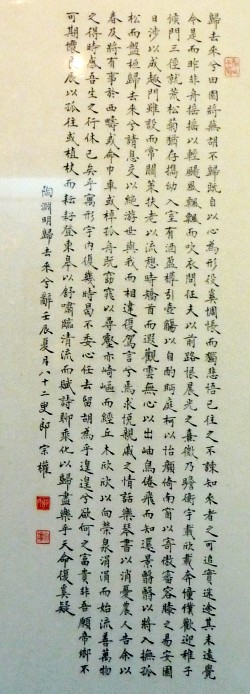 歸去來兮田園將蕪胡不歸既自以心為形役奚惆悵而獨悲悟已往之不諫知來者之可追實迷途其未遠覺
今是而昨非舟搖搖以輕颺風飄飄而吹衣問征夫以前路恨晨光之熹微乃瞻衡宇載欣載奔僮僕歡迎稚子
候門三徑就荒松菊猶存攜幼入室有酒盈樽引壺觴以自酌眄庭柯以怡顏倚南窗以寄傲審容膝之易安園
日涉以成趣門雖設而常關策扶老以流憩時矯首而遐觀雲無心以出岫鳥倦飛而知還景翳翳以將入撫孤
松而盤桓歸去來兮請息交以絕游世與我而相違復駕言兮焉求悅親戚之情話樂琴書以消憂農人告余以
春及將有事於西疇或命巾車或棹孤舟既窈窕以尋壑亦崎嶇而經丘木欣欣以向榮泉涓涓而始流善萬物
之得時感吾生之行休已矣乎寓形宇內復幾時曷不委心任去留胡為乎遑遑兮欲何之富貴非吾願帝鄉不
可期懷良辰以孤往或植杖而耘耔登東皋以舒嘯臨清流而賦詩聊乘化以歸盡樂乎天命復奚疑
陶淵明歸去來兮辭壬辰夏月八十二叟郎宗權